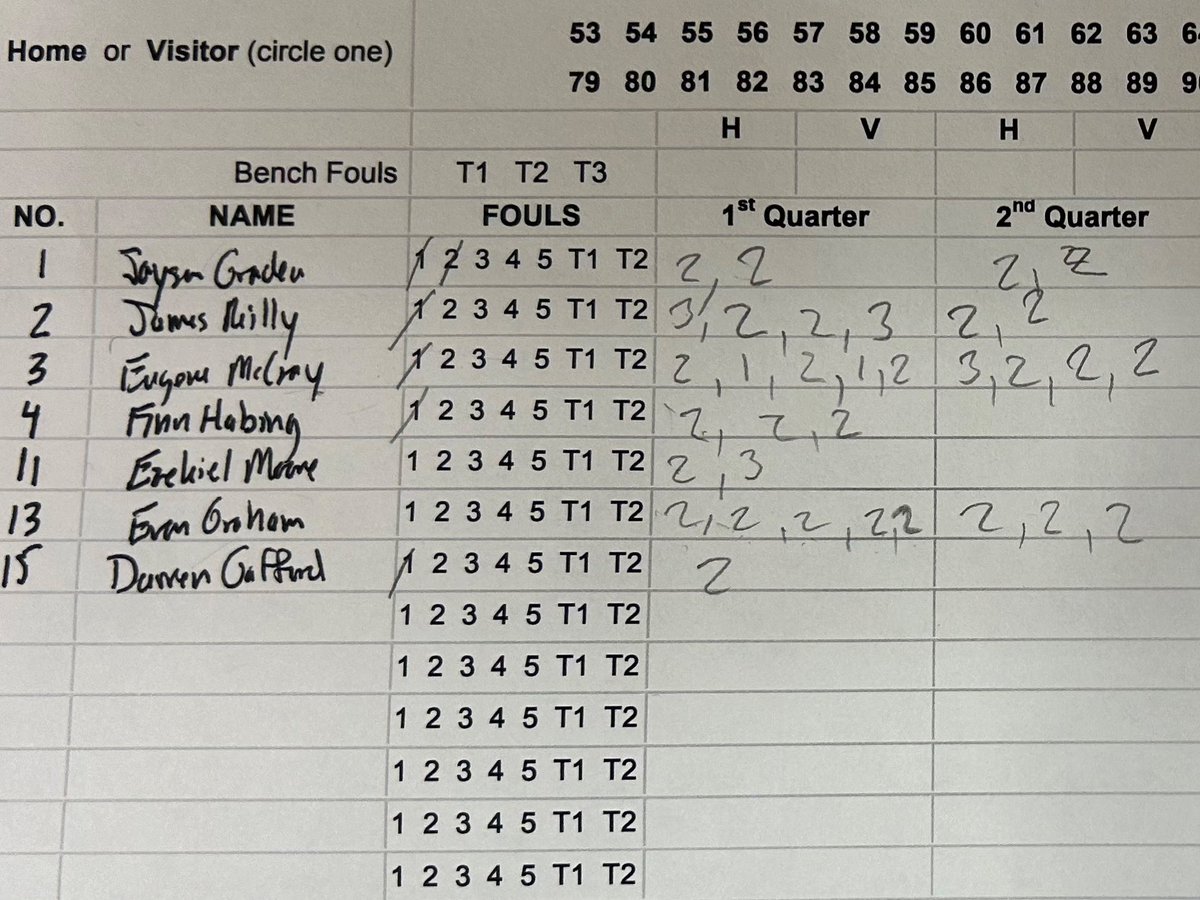 53 54 55 56 57 58 59 60 61 62 63
Home or Visitor (circle one)
79 80 81 82 83 84 85 86 87 88 89
H V H V
Bench Fouls T1 T2 T3
NO. NAME FOULS 1st Quarter 2nd Quarter
1 Jaysen Graden 1 2 3 4 5 T1 T2 2, 2 2, 2
2 James Reilly 1 2 3 4 5 T1 T2 3, 2, 2, 3 2, 2
3 Eugene McCray 1 2 3 4 5 T1 T2 2, 1, 2, 1, 2 3, 2, 2, 2
4 Finn Habing 1 2 3 4 5 T1 T2 2, 2, 2
11 Ezekiel Moore 1 2 3 4 5 T1 T2 2, 3
13 Evan Graham 1 2 3 4 5 T1 T2 2, 2, 2, 2, 2 2, 2, 2
15 Darren Gafford 1 2 3 4 5 T1 T2 2
1 2 3 4 5 T1 T2
1 2 3 4 5 T1 T2
1 2 3 4 5 T1 T2
1 2 3 4 5 T1 T2
1 2 3 4 5 T1 T2
1 2 3 4 5 T1 T2